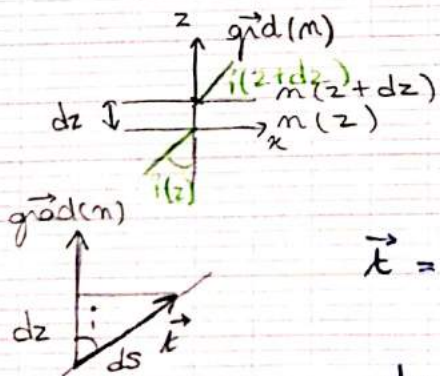 z
grad(n)
i(z+dz)
n(z+dz)
dz
n(z)
x
i(z)
grad(n)
t =
dz
i
ds
t